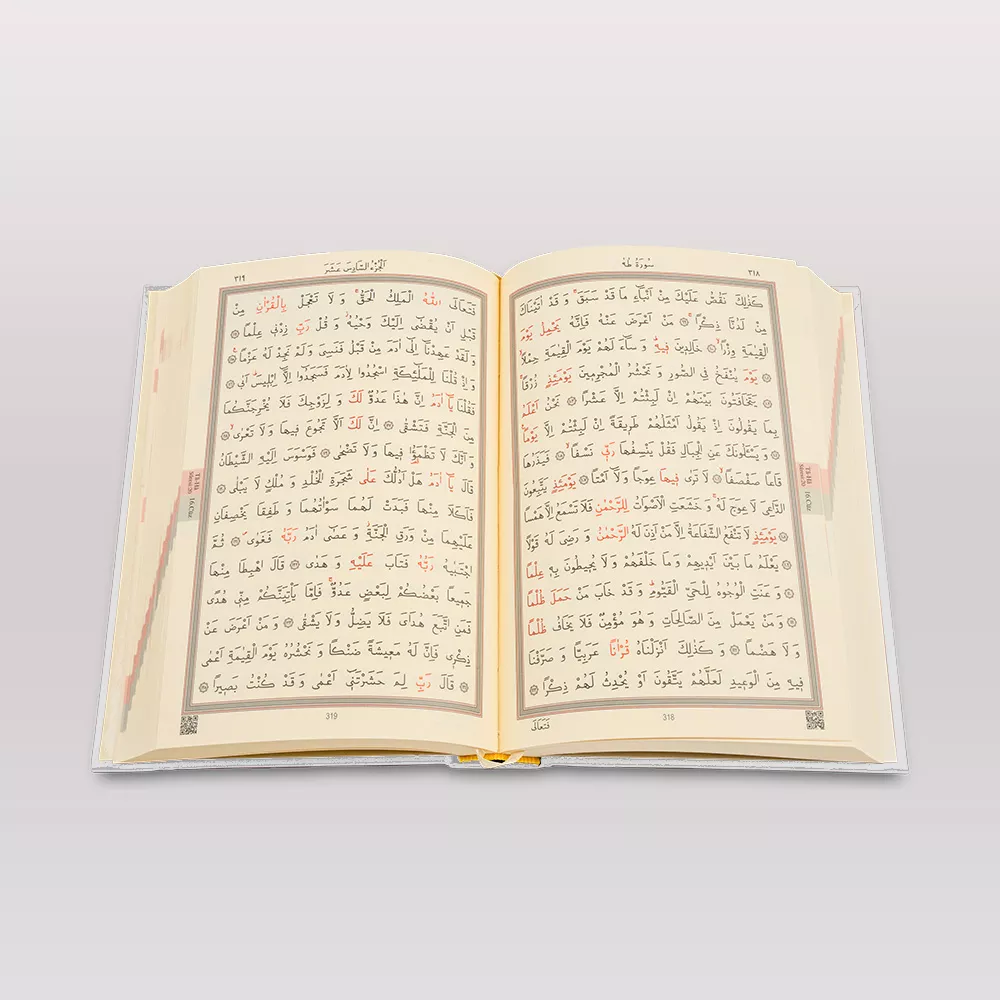 سُورَةُ طٰهٰ
٣١٨
كَذٰلِكَ نَقُصُّ عَلَيْكَ مِنْ اَنْبَٓاءِ مَا قَدْ سَبَقَۚ وَ قَدْ اٰتَيْنَاكَ
مِنْ لَدُنَّا ذِكْرًاۚ مَنْ اَعْرَضَ عَنْهُ فَاِنَّهُ يَحْمِلُ يَوْمَ
الْقِيٰمَةِ وِزْرًاۙ خَالِدٖينَ فٖيهِۜ وَ سَٓاءَ لَهُمْ يَوْمَ الْقِيٰمَةِ حِمْلًاۙ
يَوْمَ يُنْفَخُ فِي الصُّورِ وَ نَحْشُرُ الْمُجْرِمٖينَ يَوْمَئِذٍ زُرْقًاۚ
يَتَخَافَتُونَ بَيْنَهُمْ اِنْ لَبِثْتُمْ اِلَّا عَشْرًا نَحْنُ اَعْلَمُ
بِمَا يَقُولُونَ اِذْ يَقُولُ اَمْثَلُهُمْ طَرٖيقَةً اِنْ لَبِثْتُمْ اِلَّا يَوْمًاۚ
وَ يَسْـَٔلُونَكَ عَنِ الْجِبَالِ فَقُلْ يَنْسِفُهَا رَبّٖي نَسْفًاۙ فَيَذَرُهَا
قَاعًا صَفْصَفًاۙ لَا تَرٰى فٖيهَا عِوَجًا وَ لَٓا اَمْتًاۜ يَوْمَئِذٍ يَتَّبِعُونَ
الدَّاعِيَ لَا عِوَجَ لَهُۚ وَ خَشَعَتِ الْاَصْوَاتُ لِلرَّحْمٰنِ فَلَا تَسْمَعُ اِلَّا هَمْسًا
يَوْمَئِذٍ لَا تَنْفَعُ الشَّفَاعَةُ اِلَّا مَنْ اَذِنَ لَهُ الرَّحْمٰنُ وَ رَضِيَ لَهُ قَوْلًا
يَعْلَمُ مَا بَيْنَ اَيْدٖيهِمْ وَ مَا خَلْفَهُمْ وَ لَا يُحٖيطُونَ بِهٖ عِلْمًا
وَ عَنَتِ الْوُجُوهُ لِلْحَيِّ الْقَيُّومِۜ وَ قَدْ خَابَ مَنْ حَمَلَ ظُلْمًا
وَ مَنْ يَعْمَلْ مِنَ الصَّالِحَاتِ وَ هُوَ مُؤْمِنٌ فَلَا يَخَافُ ظُلْمًا
وَ لَا هَضْمًا وَ كَذٰلِكَ اَنْزَلْنَاهُ قُرْاٰنًا عَرَبِيًّا وَ صَرَّفْنَا
فٖيهِ مِنَ الْوَعٖيدِ لَعَلَّهُمْ يَتَّقُونَ اَوْ يُحْدِثُ لَهُمْ ذِكْرًا
فَتَعَالَى
318
16.Cüz
٣١٩
اَلْجُزْءُ السَّادِسَ عَشَرَ
فَتَعَالَى اللّٰهُ الْمَلِكُ الْحَقُّۚ وَ لَا تَعْجَلْ بِالْقُرْاٰنِ مِنْ
قَبْلِ اَنْ يُقْضٰٓى اِلَيْكَ وَحْيُهُۘ وَ قُلْ رَبِّ زِدْنٖي عِلْمًا
وَ لَقَدْ عَهِدْنَٓا اِلٰٓى اٰدَمَ مِنْ قَبْلُ فَنَسِيَ وَلَمْ نَجِدْ لَهُ عَزْمًاۚ
وَ اِذْ قُلْنَا لِلْمَلٰٓئِكَةِ اسْجُدُوا لِاٰدَمَ فَسَجَدُٓوا اِلَّٓا اِبْلٖيسَۜ اَبٰى
فَقُلْنَا يَٓا اٰدَمُ اِنَّ هٰذَا عَدُوٌّ لَكَ وَ لِزَوْجِكَ فَلَا يُخْرِجَنَّكُمَا
مِنَ الْجَنَّةِ فَتَشْقٰى اِنَّ لَكَ اَلَّا تَجُوعَ فٖيهَا وَ لَا تَعْرٰىۙ
وَ اَنَّكَ لَا تَظْمَؤُ۬ا فٖيهَا وَ لَا تَضْحٰى فَوَسْوَسَ اِلَيْهِ الشَّيْطَانُ
قَالَ يَٓا اٰدَمُ هَلْ اَدُلُّكَ عَلٰى شَجَرَةِ الْخُلْدِ وَ مُلْكٍ لَا يَبْلٰى
فَاَكَلَا مِنْهَا فَبَدَتْ لَهُمَا سَوْاٰتُهُمَا وَ طَفِقَا يَخْصِفَانِ
عَلَيْهِمَا مِنْ وَرَقِ الْجَنَّةِۘ وَ عَصٰٓى اٰدَمُ رَبَّهُ فَغَوٰىۖ ثُمَّ
اجْتَبٰيهُ رَبُّهُ فَتَابَ عَلَيْهِ وَ هَدٰى قَالَ اهْبِطَا مِنْهَا
جَمٖيعًا بَعْضُكُمْ لِبَعْضٍ عَدُوٌّۚ فَاِمَّا يَاْتِيَنَّكُمْ مِنّٖي هُدًى
فَمَنِ اتَّبَعَ هُدَايَ فَلَا يَضِلُّ وَ لَا يَشْقٰى وَ مَنْ اَعْرَضَ عَنْ
ذِكْرٖي فَاِنَّ لَهُ مَعٖيشَةً ضَنْكًا وَ نَحْشُرُهُ يَوْمَ الْقِيٰمَةِ اَعْمٰى
قَالَ رَبِّ لِمَ حَشَرْتَنٖٓي اَعْمٰى وَ قَدْ كُنْتُ بَصٖيرًا
319
16.Cüz